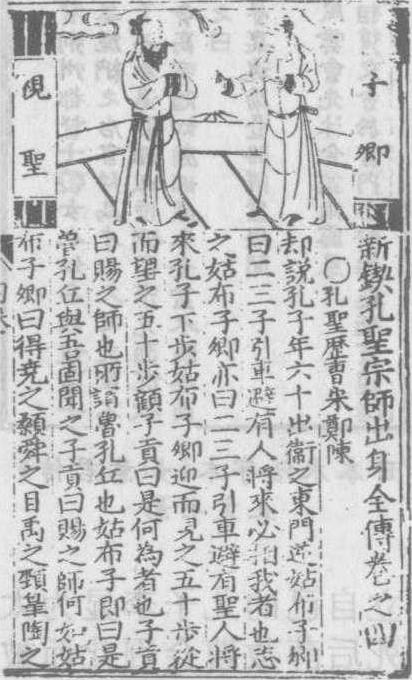 子卿
睍聖
新鍥孔聖宗師出身全傳卷之四
〇孔聖歷曹宋鄭陳
却說孔子年六十出衞之東門逆姑布子卿
曰二三子引車避有人將來必相我者也志
之姑布子卿亦曰二三子引車避有聖人將
來孔子下步姑布子卿迎而見之五十步從
而望之五十步顧子貢曰是何為者也子貢
曰賜之師也所謂魯孔丘也姑布子卽曰是
魯孔丘與吾固聞之子貢曰賜之師何如姑
布子卿曰得堯之顙舜之目禹之頸臯陶之